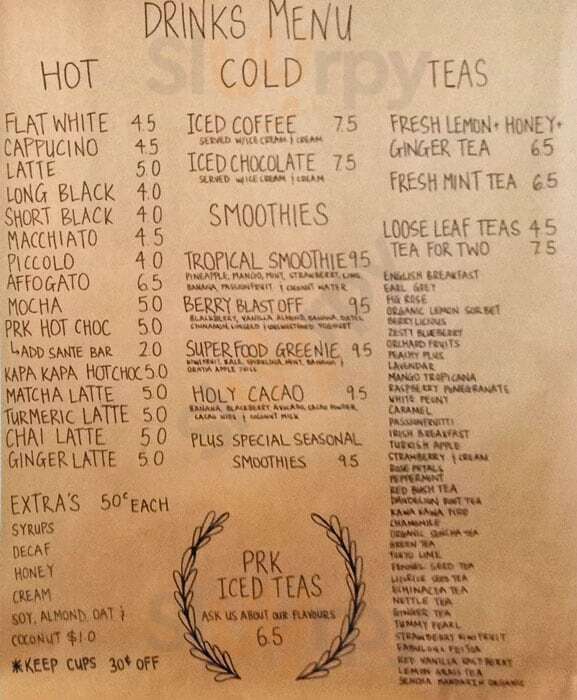 DRINKS MENU
HOT
FLAT WHITE 4.5
CAPPUCINO 4.5
LATTE 5.0
LONG BLACK 4.0
SHORT BLACK 4.0
MACCHIATO 4.5
PICCOLO 4.0
AFFOGATO 6.5
MOCHA 5.0
PRK HOT CHOC 5.0
↳ADD SANTE BAR 2.0
KAPA KAPA HOTCHOC 5.0
MATCHA LATTE 5.0
TURMERIC LATTE 5.0
CHAI LATTE 5.0
GINGER LATTE 5.0
EXTRA'S 50¢ EACH
SYRUPS
DECAF
HONEY
CREAM
SOY, ALMOND, OAT &
COCONUT $1.0
*KEEP CUPS 30¢ OFF
COLD
ICED COFFEE 7.5
SERVED W/ICE CREAM & CREAM
ICED CHOCOLATE 7.5
SERVED W/ICE CREAM & CREAM
SMOOTHIES
TROPICAL SMOOTHIE 9.5
PINEAPPLE, MANGO, MINT, STRAWBERRY, LIME,
BANANA, PASSIONFRUIT & COCONUT WATER
BERRY BLAST OFF 9.5
BLACKBERRY, VANILLA, ALMOND, BANANA, DATES,
CINNAMON, LINSEED & UNSWEETENED YOGHURT
SUPERFOOD GREENIE 9.5
KIWIFRUIT, KALE, SPIRULINA, MINT, BANANA &
APPLE JUICE
HOLY CACAO 9.5
BANANA, BLACKBERRY, AVOCADO, CACAO POWDER,
CACAO NIBS & COCONUT MILK
PLUS SPECIAL SEASONAL
SMOOTHIES 9.5
PRK
ICED TEAS
ASK US ABOUT OUR FLAVOURS
6.5
TEAS
FRESH LEMON + HONEY +
GINGER TEA 6.5
FRESH MINT TEA 6.5
LOOSE LEAF TEAS 4.5
TEA FOR TWO 7.5
ENGLISH BREAKFAST
EARL GREY
FIG ROSE
ORGANIC LEMON SORBET
BERRYLICIOUS
ZESTY BLUEBERRY
ORCHARD FRUITS
PEACHY PLUS
LAVENDAR
MANGO TROPICANA
RASPBERRY POMEGRANATE
WHITE PEONY
CARAMEL
PASSIONFRUITTI
IRISH BREAKFAST
TURKISH APPLE
STRAWBERRY & CREAM
ROSE PETALS
PEPPERMINT
RED BUSH TEA
DANDELION ROOT TEA
KAWA KAWA FIRE
CHAMOMILE
ORGANIC SENCHA TEA
GREEN TEA
TOKYO LIME
FENNEL SEED TEA
LICORICE TEA
ECHINACEA TEA
NETTLE TEA
GINGER TEA
TUMMY PEARL
STRAWBERRY KIWIFRUIT
FABULOUS FEIJOA
RED VANILLA RASPBERRY
LEMON GRASS TEA
SENCHA MANDARIN ORGANIC